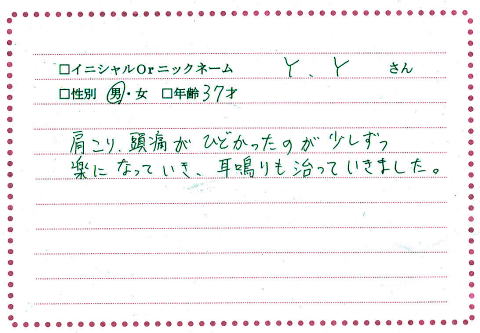 □イニシャルOrニックネーム Y、Y さん
□性別 男・女 □年齢37才
肩こり、頭痛がひどかったのが少しずつ
楽になっていき、耳鳴りも治っていきました。